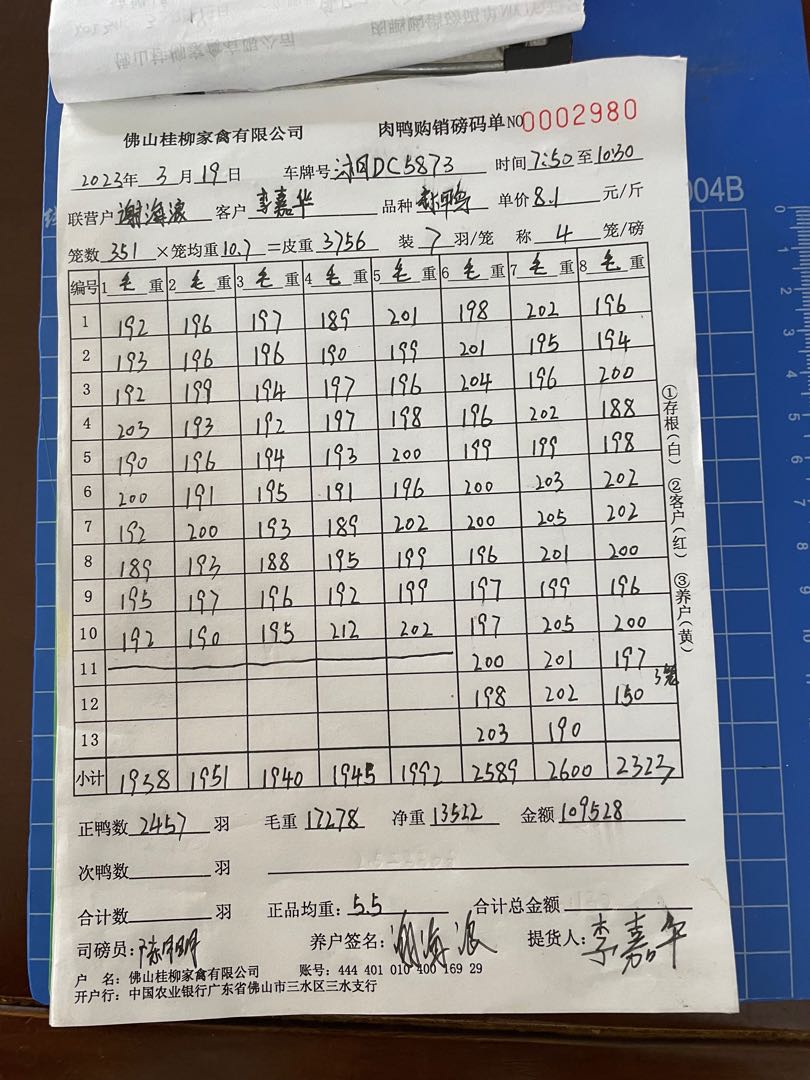 佛山桂柳家禽有限公司 肉鸭购销磅码单 NO 0002980
2023年 3 月 19 日 车牌号 DC5873 时间 7:50 至 10:30
联营户 谢海浪 客户 李嘉华 品种 鸭 单价 8.1 元/斤
笼数 351 ×笼均重 10.7 =皮重 3756 装 7 羽/笼 称 4 笼/磅
编号 1 毛 重 2 毛 重 3 毛 重 4 毛 重 5 毛 重 6 毛 重 7 毛 重 8 毛 重
1 192 196 197 189 201 198 202 196
2 193 196 196 190 199 201 195 194
3 192 199 194 197 196 204 196 200
4 203 193 192 197 198 196 202 188
5 190 196 194 193 200 199 199 198
6 200 191 195 191 196 200 203 202
7 192 200 193 189 202 200 205 202
8 189 193 188 195 199 196 201 200
9 195 197 196 192 199 197 199 196
10 192 190 195 212 202 197 205 200
11 200 201 197
12 198 202 150 3笼
13 203 190
小计 1938 1951 1940 1945 1992 2589 2600 2323
正鸭数 2457 羽 毛重 17278 净重 13522 金额 109528
次鸭数 羽
合计数 羽 正品均重: 5.5 合计总金额
司磅员: 养户签名: 谢海浪 提货人: 李嘉华
户 名: 佛山桂柳家禽有限公司 账号: 444 401 010 400 169 29
开户行: 中国农业银行广东省佛山市三水区三水支行
①存根(白) ②客户(红) ③养户(黄)
004B
0 1 2 3 4 5 6 7 8 9 10